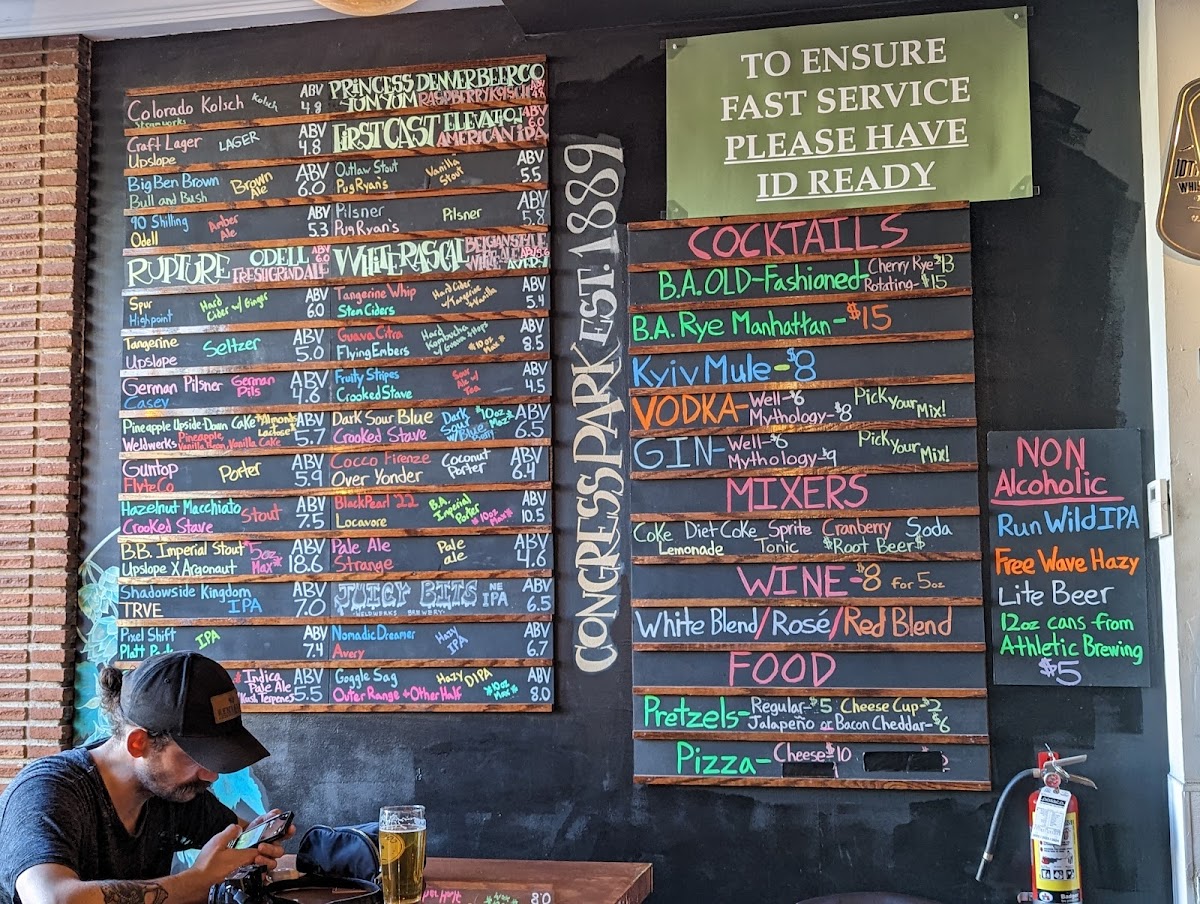 Colorado Kolsch Kolsch ABV 4.8
Steamworks
Craft Lager LAGER ABV 4.8
Upslope
Big Ben Brown Brown Ale ABV 6.0
Bull and Bush
90 Shilling Amber Ale ABV 5.3
Odell
RUPTURE ODELL ABV 6.0
FRESH GRIND ALE
Spur Hard Cider w/ Ginger ABV 6.0
Highpoint
Tangerine Seltzer ABV 5.0
Upslope
German Pilsner German Pils ABV 4.6
Casey
Pineapple Upside-Down Cake *Almond Lactose* ABV 5.7
Weldwerks Pineapple, Vanilla Bean, Vanilla Cake
Guntop Porter ABV 5.9
Flyte Co
Hazelnut Macchiato Stout ABV 7.5
Crooked Stave
B.B. Imperial Stout *5oz Max* ABV 18.6
Upslope X Argonaut
Shadowside Kingdom IPA ABV 7.0
TRVE
Pixel Shift IPA ABV 7.4
Platt
Indica Pale Ale ABV 5.5
Kush Terpenes
PRINCESS DENVER BEER CO
YUM YUM RASPBERRY KOLSCH
FIRST CAST ELEVATION ABV 6.0
AMERICAN IPA
Outlaw Stout Vanilla Stout ABV 5.5
Pug Ryan's
Pilsner Pilsner ABV 5.8
Pug Ryan's
WHITE RASCAL BELGIAN STYLE
WHITE ALE ABV 5.6
AVERY
Tangerine Whip Hard Cider w/ Tangerine & Vanilla ABV 5.4
Stem Ciders
Guava Citra Hard Kombucha w/ Guava & Hops *10oz Max* ABV 8.5
Flying Embers
Fruity Stripes Sour Ale w/ Tea ABV 4.5
Crooked Stave
Dark Sour Blue Dark Sour w/ Blueberry *10oz Max* ABV 6.5
Crooked Stave
Cocco Firenze Coconut Porter ABV 6.4
Over Yonder
Black Pearl '22 B.A. Imperial Porter *10oz Max* ABV 10.5
Locavore
Pale Ale Pale ale ABV 4.6
Strange
JUICY BITS NE IPA ABV 6.5
WELDWERKS BREWERY
Nomadic Dreamer Hazy IPA ABV 6.7
Avery
Goggle Sag Hazy DIPA *10oz Max* ABV 8.0
Outer Range + Other Half
CONGRESS PARK EST. 1889
TO ENSURE
FAST SERVICE
PLEASE HAVE
ID READY
COCKTAILS
B.A. OLD-Fashioned- Cherry Rye $13
Rotating- $15
B.A. Rye Manhattan- $15
Kyiv Mule- $8
VODKA- Well- $6 Pick Your Mix!
Mythology- $8
GIN- Well- $6 Pick Your Mix!
Mythology- $9
MIXERS
Coke Diet Coke Sprite Cranberry Soda
Lemonade Tonic $Root Beer$
WINE- $8 for 5oz
White Blend/Rosé/Red Blend
FOOD
Pretzels- Regular- $5 Cheese Cup- $2
Jalapeño or Bacon Cheddar- $6
Pizza- Cheese $10
NON
Alcoholic
Run Wild IPA
Free Wave Hazy
Lite Beer
12oz cans from
Athletic Brewing
$5